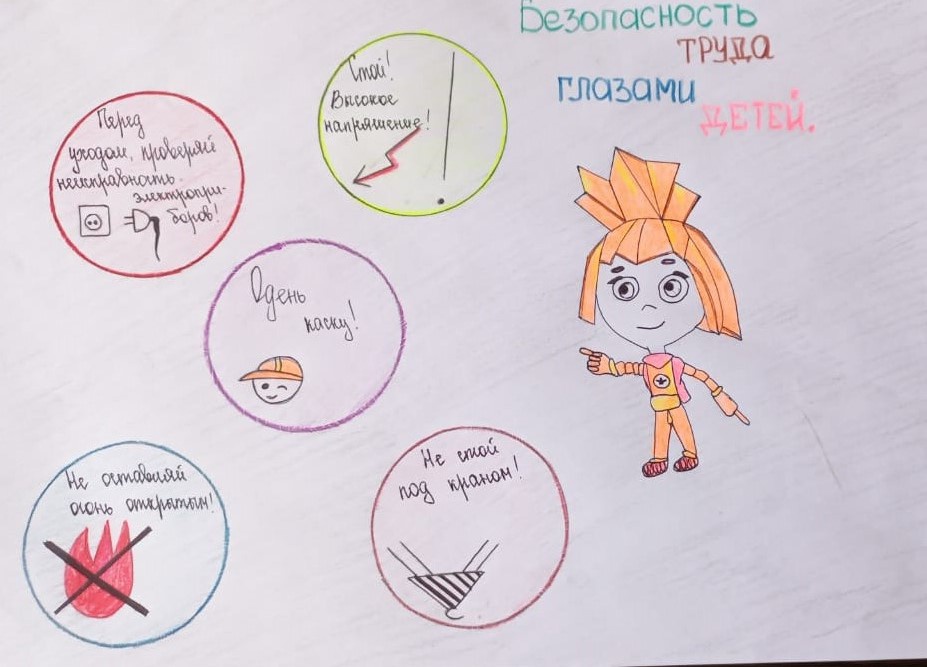 Безопасность
труда
глазами
детей.
Стой!
Высокое
напряжение!
Перед
уходом, проверяй
неисправность
электропри-
боров!
Одень
каску!
Не оставляй
огонь открытым!
Не стой
под краном!